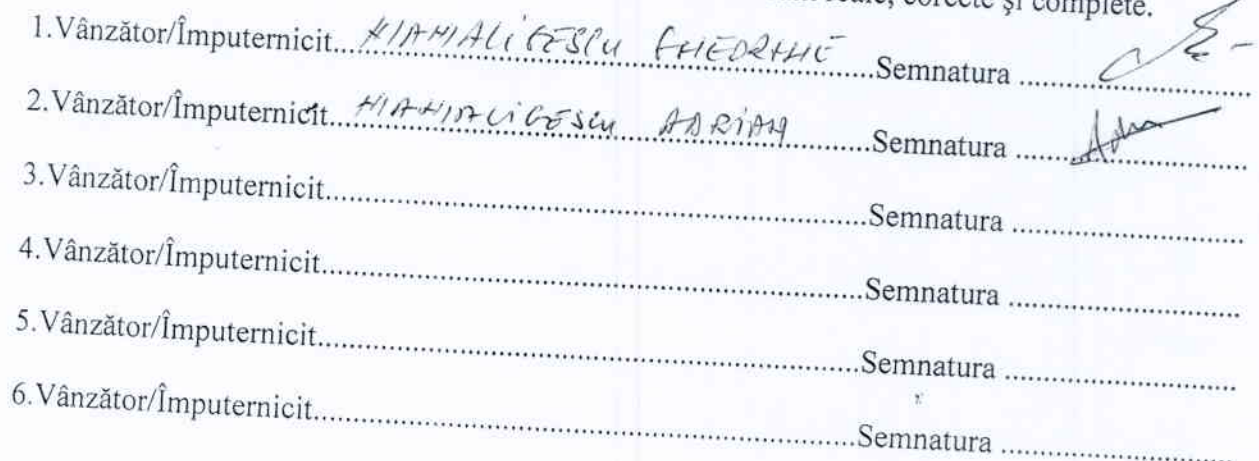 corecte şi complete.
1.Vânzător/Împuternicit... GHEORGHE ...Semnatura ...
2.Vânzător/Împuternicit... ADRIAN ...Semnatura ...
3.Vânzător/Împuternicit...Semnatura ...
4.Vânzător/Împuternicit...Semnatura ...
5.Vânzător/Împuternicit...Semnatura ...
6.Vânzător/Împuternicit...Semnatura ...